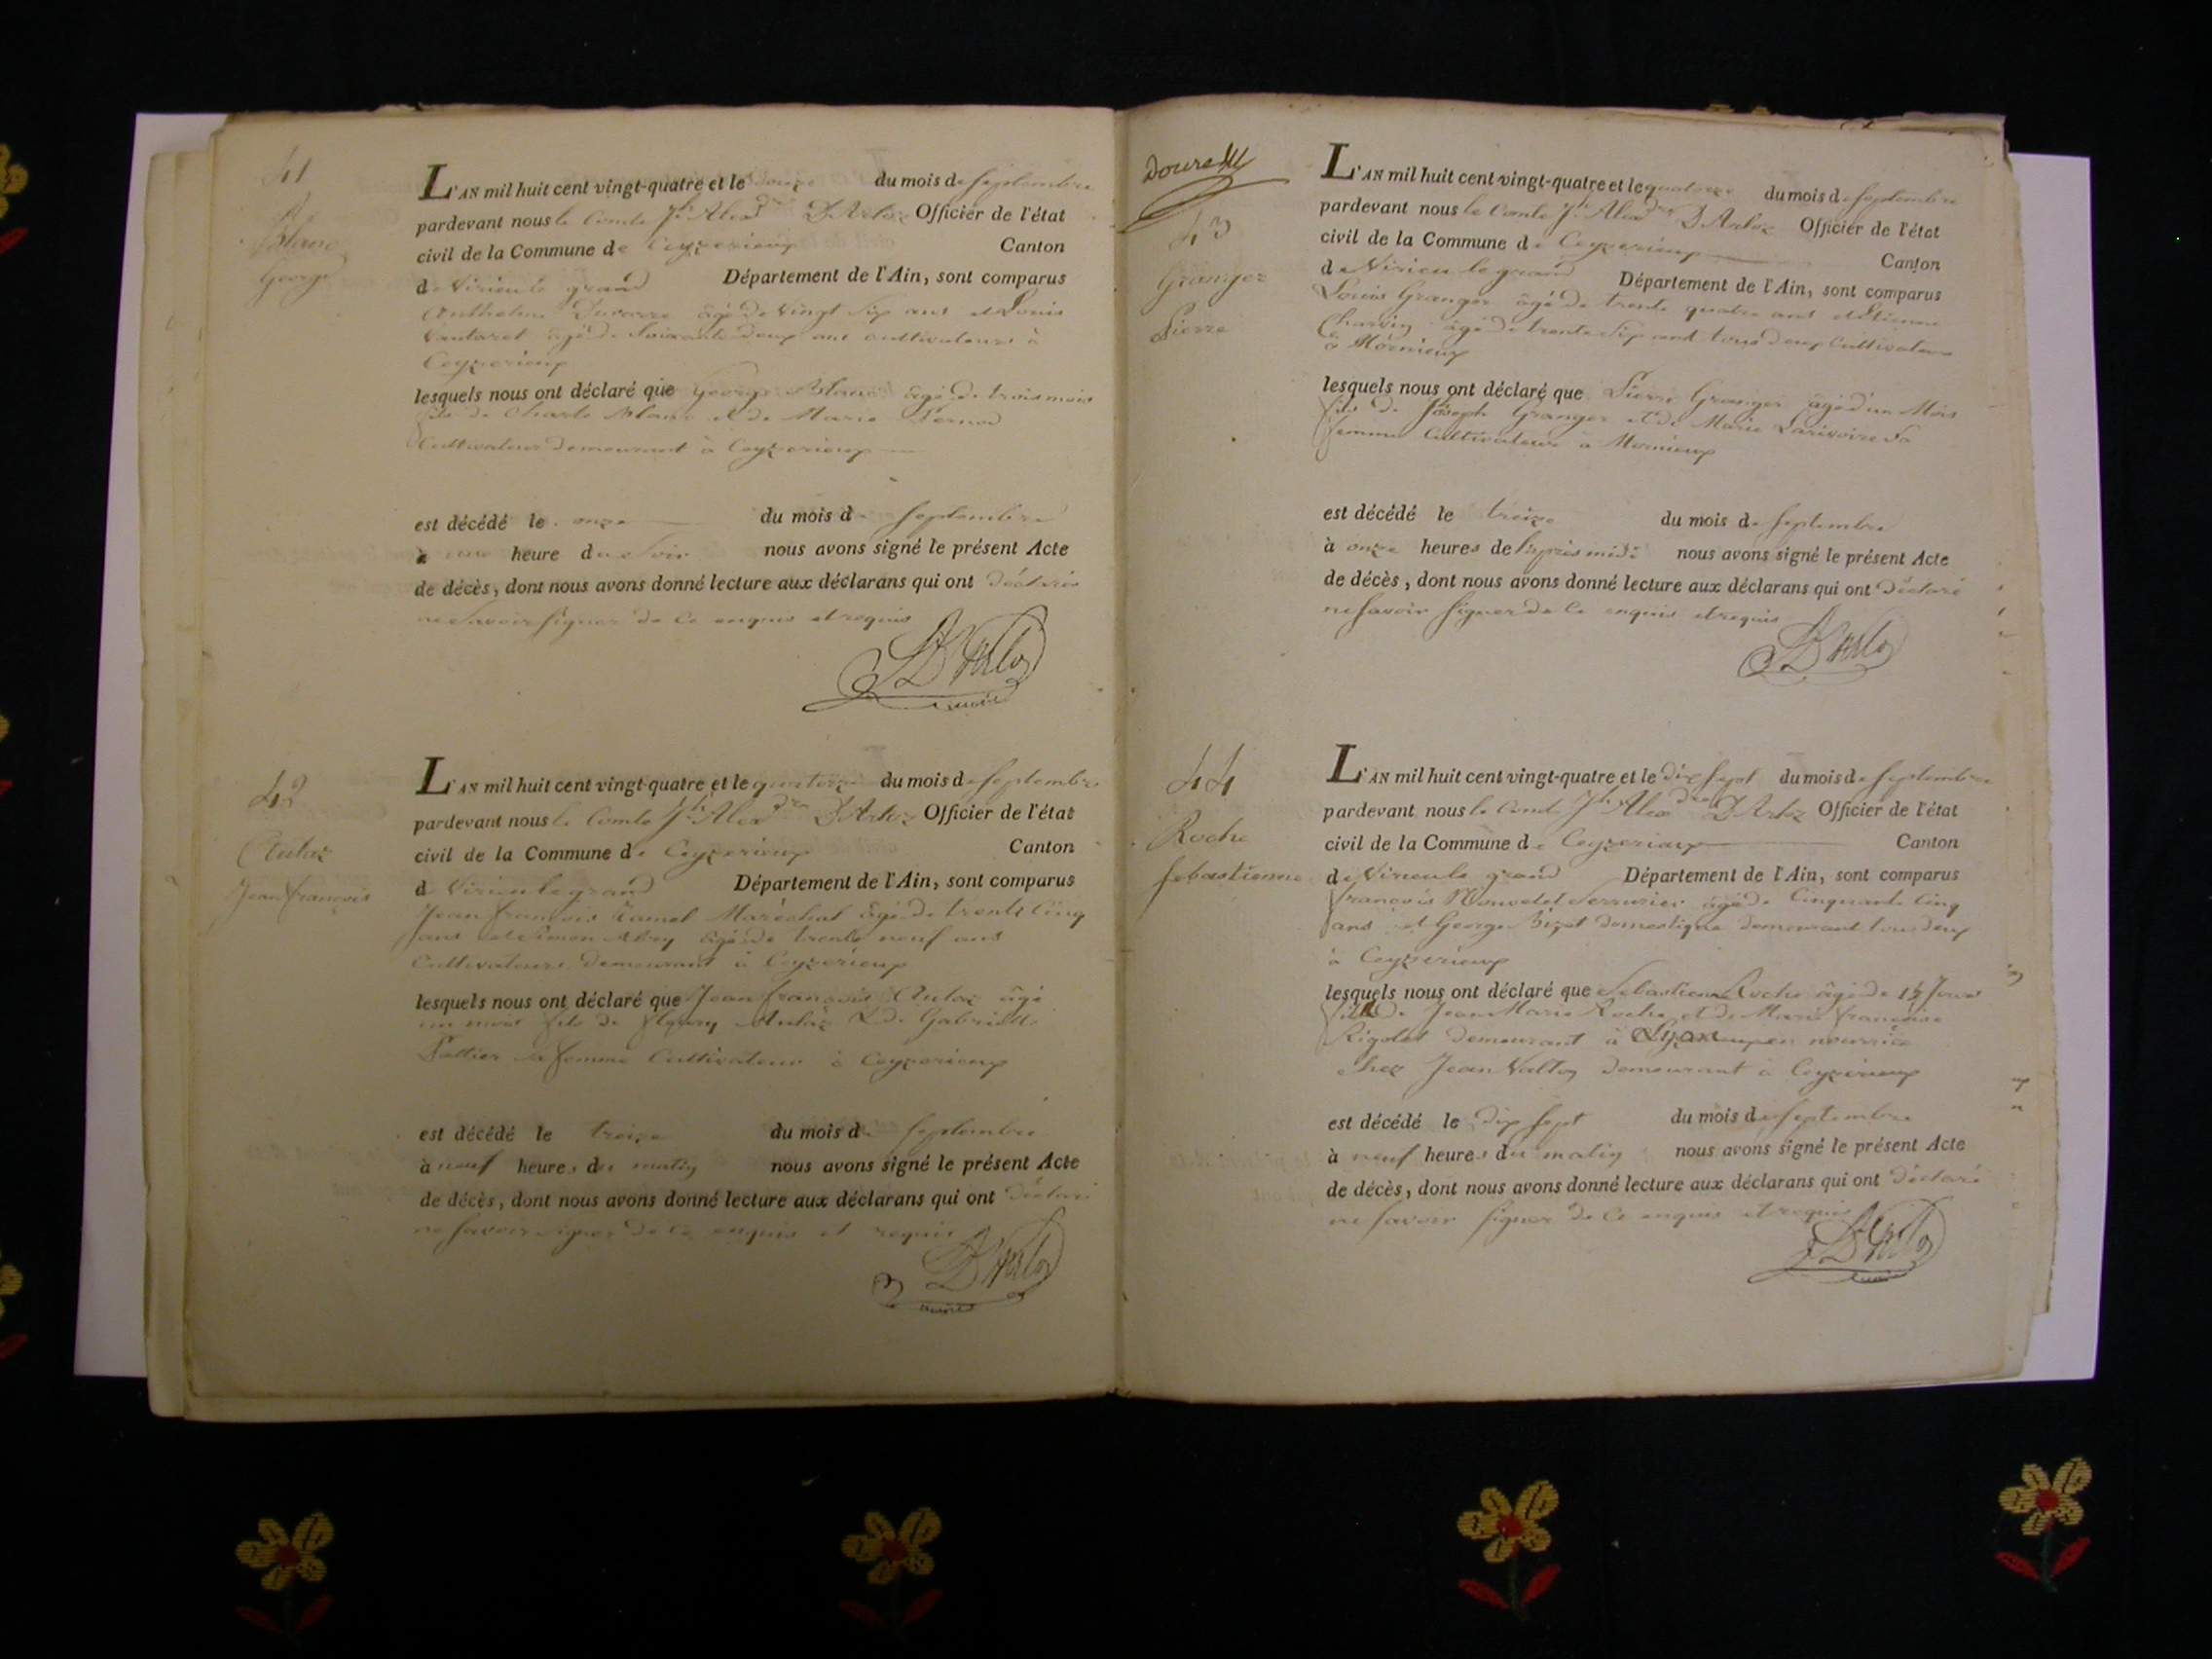 41
Blanc
George
L'AN mil huit cent vingt-quatre et le douze du mois de septembre
pardevant nous le Comte Jh Alexdre D'Arloz Officier de l'état
civil de la Commune de Ceyzerieux Canton
de Virieu le grand Département de l'Ain, sont comparus
Anthelme âgé de vingt six ans et Louis
âgé de soixante deux ans cultivateurs à
Ceyzerieux
lesquels nous ont déclaré que George Blanc âgé de trois mois
fils de Charle Blanc et de Marie Pernod
Cultivateur demeurant à Ceyzerieux
est décédé le onze du mois de septembre
à une heure du soir nous avons signé le présent Acte
de décès, dont nous avons donné lecture aux déclarans qui ont déclarés
ne savoir signer de ce enquis et requis
D'Arloz
maire
42
Jean françois
L'AN mil huit cent vingt-quatre et le quatorze du mois de septembre
pardevant nous le Comte Jh Alexdre D'Arloz Officier de l'état
civil de la Commune de Ceyzerieux Canton
de Virieu le grand Département de l'Ain, sont comparus
Jean françois Maréchal âgé de trente cinq
ans et Simon âgé de trente neuf ans
Cultivateurs demeurant à Ceyzerieux
lesquels nous ont déclaré que Jean françois âgé
un mois fils de et de Gabrielle
sa femme Cultivateur à Ceyzerieux
est décédé le treize du mois de septembre
à neuf heures du matin nous avons signé le présent Acte
de décès, dont nous avons donné lecture aux déclarans qui ont déclaré
ne savoir signer de ce enquis et requis
D'Arloz
maire
43
Granger
Pierre
L'AN mil huit cent vingt-quatre et le quatorze du mois de septembre
pardevant nous le Comte Jh Alexdre D'Arloz Officier de l'état
civil de la Commune de Ceyzerieux Canton
de Virieu le grand Département de l'Ain, sont comparus
Louis Granger âgé de trente quatre ans et Etienne
Charvin âgé de trente six ans tous deux Cultivateurs
à Mornieux
lesquels nous ont déclaré que Pierre Granger âgé d'un Mois
fils de Joseph Granger et de Marie Larivoire sa
femme Cultivateurs a Mornieux
est décédé le treize du mois de septembre
à onze heures de l'après midi nous avons signé le présent Acte
de décès, dont nous avons donné lecture aux déclarans qui ont déclaré
ne savoir signer de ce enquis et requis
D'Arloz
44
Roche
sebastienne
L'AN mil huit cent vingt-quatre et le dix sept du mois de septembre
pardevant nous le Comte Jh Alexdre D'Arloz Officier de l'état
civil de la Commune de Ceyzerieux Canton
de Virieu le grand Département de l'Ain, sont comparus
françois serrurier âgé de Cinquante Cinq
ans et George Bizet domestique demeurant tous deux
à Ceyzerieux
lesquels nous ont déclaré que Sebastienne Roche âgé de 15 Jours
fille de Jean Marie Roche et de Marie françoise
Rigolet demeurant à Lyon en nourrice
chez Jean demeurant à Ceyzerieux
est décédé le dix sept du mois de septembre
à neuf heures du matin nous avons signé le présent Acte
de décès, dont nous avons donné lecture aux déclarans qui ont déclaré
ne savoir signer de ce enquis et requis
D'Arloz
maire